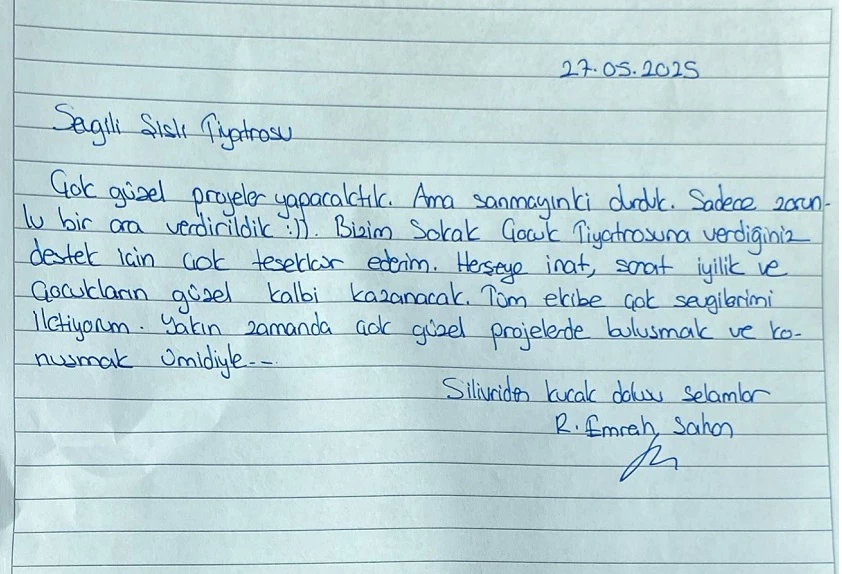 27.05.2025
Sevgili Şişli Tiyatrosu
Çok güzel projeler yapacaktık. Ama sanmayınki durduk. Sadece zorun-
lu bir ara verdirildik :)). Bizim Sokak Çocuk Tiyatrosuna verdiğiniz
destek için çok teşekkür ederim. Herşeye inat, sanat iyilik ve
Çocukların güzel kalbi kazanacak. Tüm ekibe çok sevgilerimi
iletiyorum. Yakın zamanda çok güzel projelerde buluşmak ve ko-
nuşmak ümidiyle---
Silivriden kucak dolusu selamlar
R. Emrah Şahan